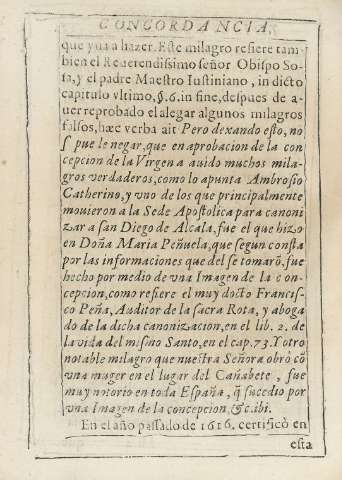 CONCORDANCIA.
que yua a hazer. Este milagro refiere tam
bien el Reuerendissimo señor Obispo So-
sa, y el padre Maestro Iustiniano, in dicto
capitulo vltimo, §. 6. in fine, despues de a-
uer reprobado el alegar algunos milagros
falsos, hæc verba ait Pero dexando esto, no
s pue le negar, que en aprobacion de la con
cepcion de la Virgen a auido muchos mila-
gros verdaderos, como lo apunta Ambrosio
Catherino, y vno de los que principalmente
mouieron a la Sede Apostolica para canoni
zar a san Diego de Alcala, fue el que hizo
en Doña Maria Peñuela, que segun consta
por las informaciones que del se tomarō, fue
hecho por medio de vna Imagen de la con-
cepcion, como refiere el muy docto Francis-
co Peña, Auditor de la sacra Rota, y aboga
do de la dicha canonizacion, en el lib. 2. de
la vida del mismo Santo, en el cap. 73. Y otro
notable milagro que nuestra Señora obrò cō
vna muger en el lugar del Cañabete, fue
muy notorio en toda España, q̃ sucedio por
vna Imagen de la concepcion, &c. ibi.
En el año passado de 1616. certificò en
esta